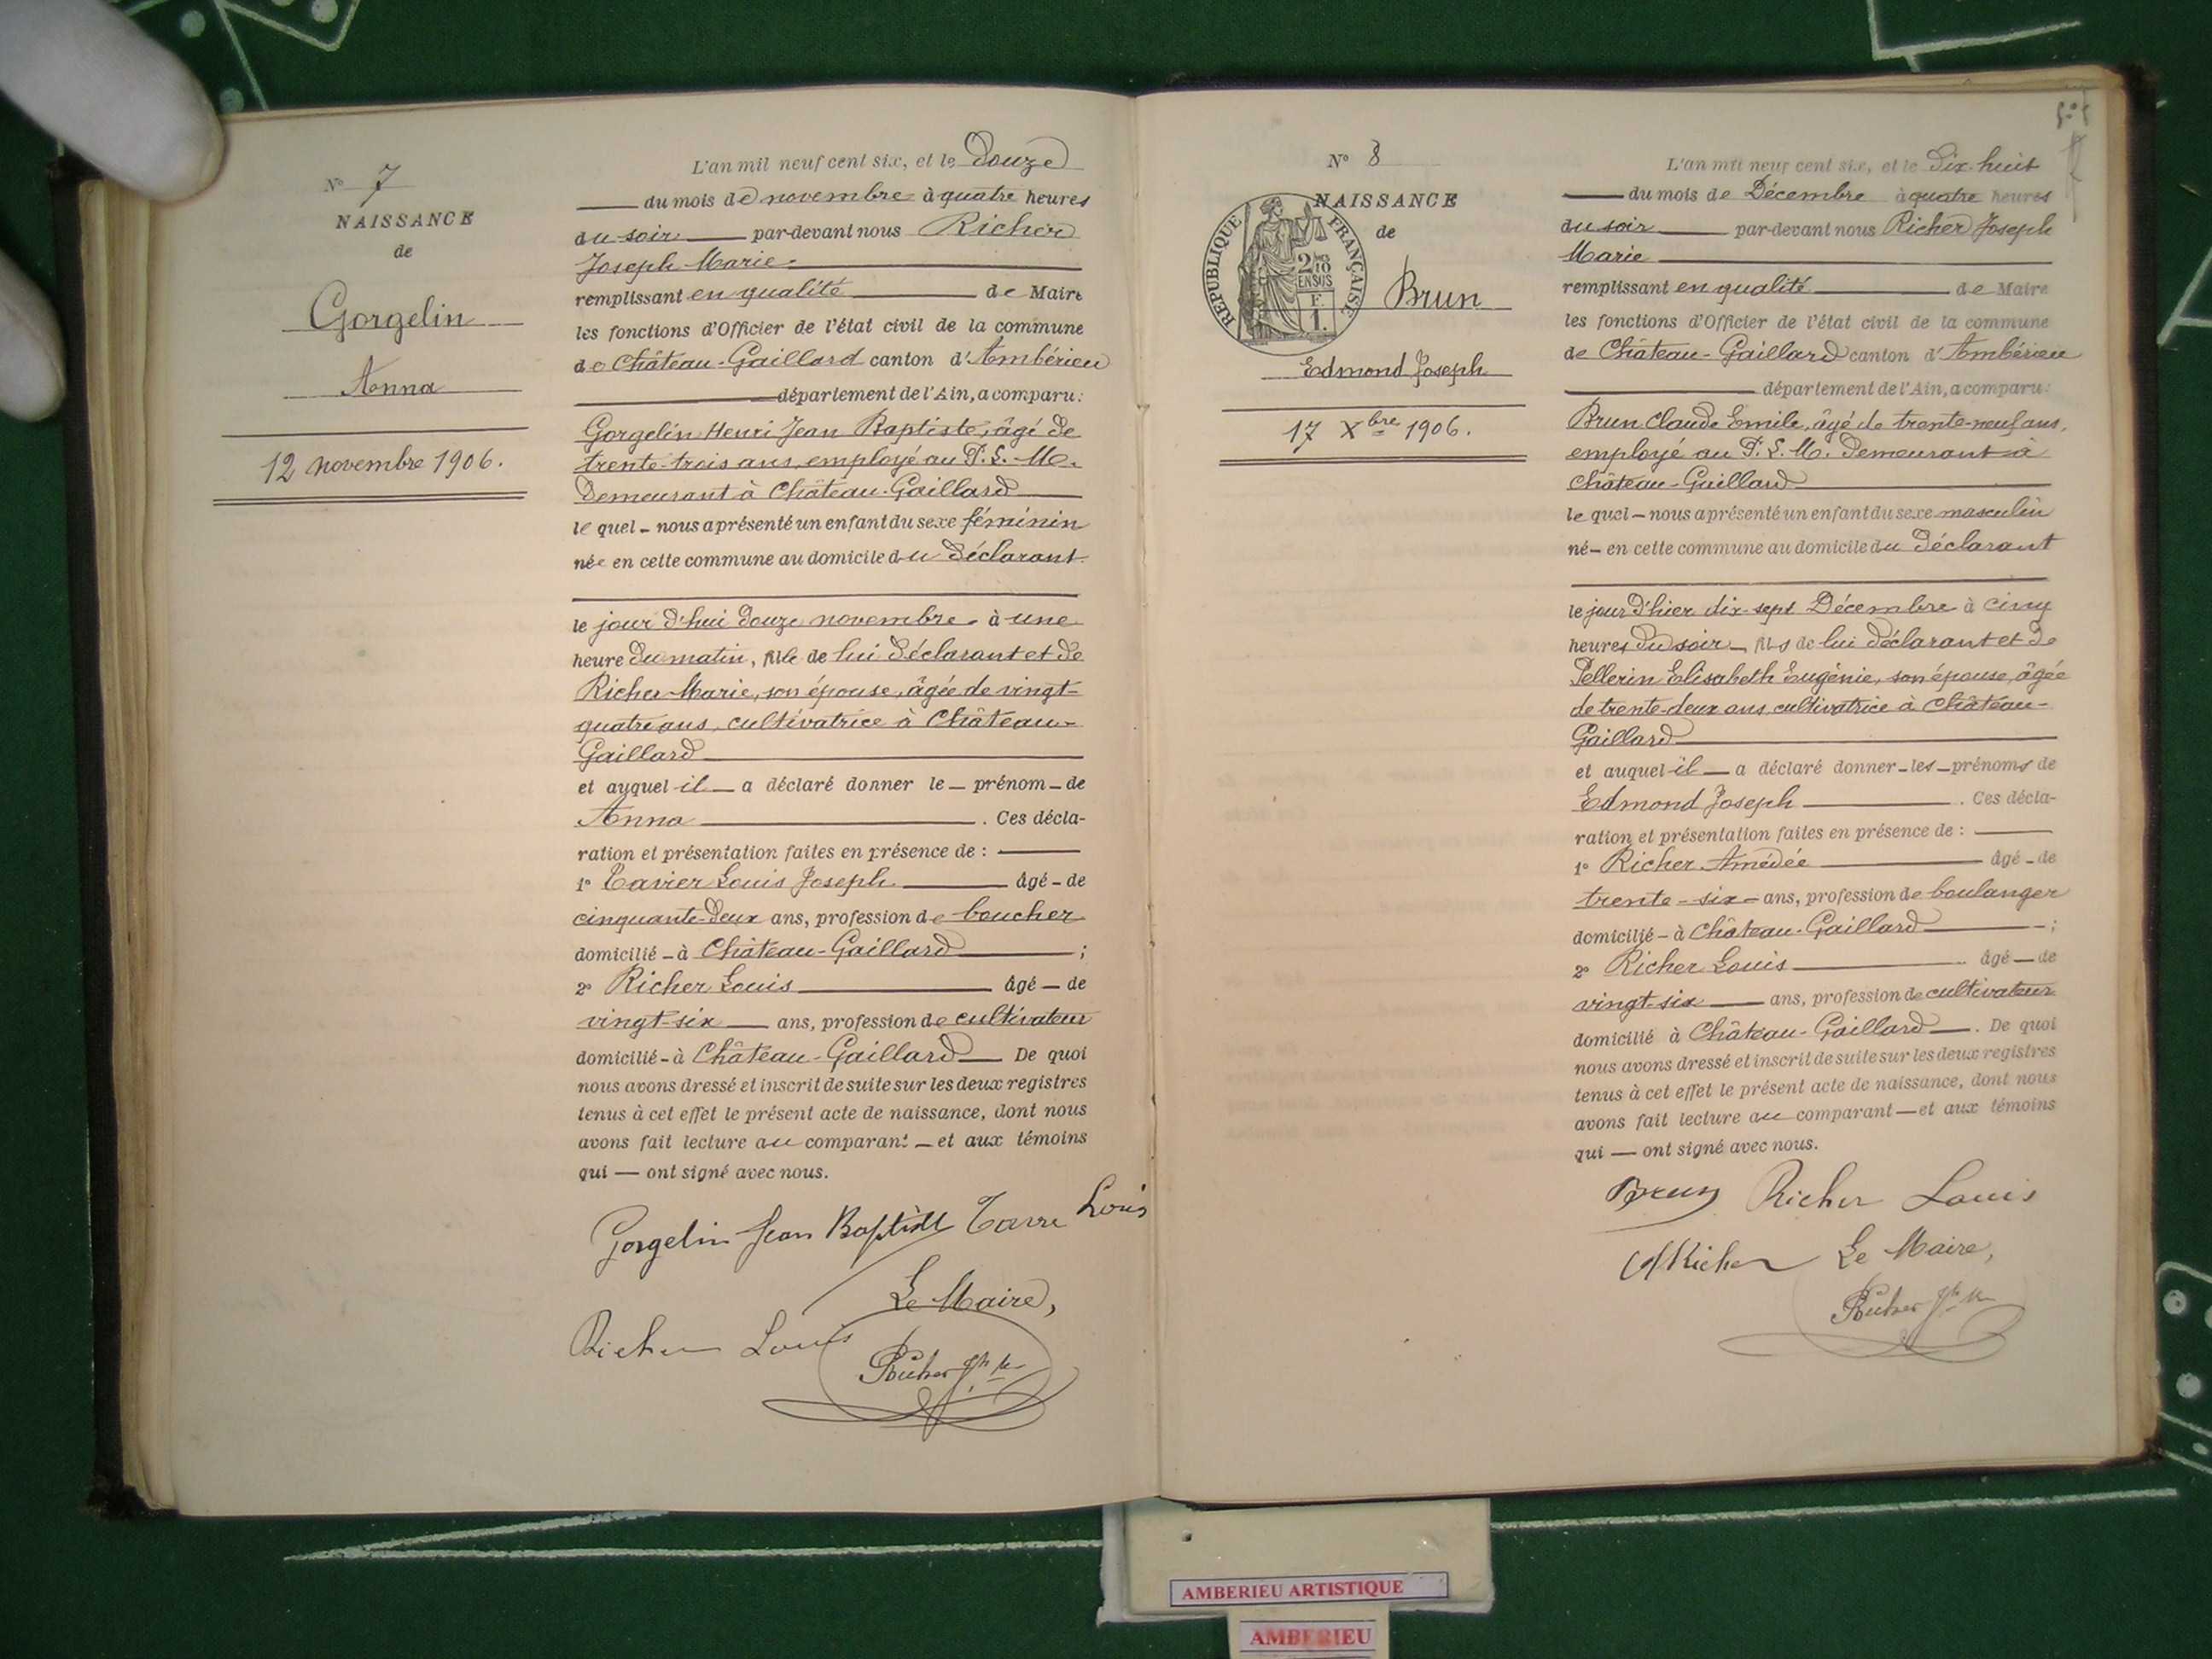 N° 7
NAISSANCE
de
Gorgelin
Anna
12 novembre 1906.
L'an mil neuf cent six, et le Douze
du mois de novembre à quatre heures
du soir par-devant nous Richer
Joseph Marie
remplissant en qualité de Maire
les fonctions d'Officier de l'état civil de la commune
de Château-Gaillard canton d'Ambérieu
département de l'Ain, a comparu:
Gorgelin Henri Jean Baptiste, âgé de
trente-trois ans, employé au P. L. M.
Demeurant à Château-Gaillard
le quel nous a présenté un enfant du sexe féminin
née en cette commune au domicile du Déclarant
le jour d'hui Douze novembre à une
heure du matin, fille de lui Déclarant et de
Richer Marie, son épouse, âgée de vingt-
quatre ans, cultivatrice à Château-
Gaillard
et auquel il a déclaré donner le prénom de
Anna. Ces décla-
ration et présentation faites en présence de :
1° Tavier Louis Joseph âgé de
cinquante-deux ans, profession de boucher
domicilié à Château-Gaillard ;
2° Richer Louis âgé de
vingt-six ans, profession de cultivateur
domicilié à Château-Gaillard De quoi
nous avons dressé et inscrit de suite sur les deux registres
tenus à cet effet le présent acte de naissance, dont nous
avons fait lecture au comparant et aux témoins
qui ont signé avec nous.
Gorgelin Jean Baptiste Louis
Le Maire,
Richer Louis
Richer Jph Me
N° 8
NAISSANCE
de
REPUBLIQUE FRANÇAISE
2/10
EN SUS
F.
1.
Brun
Edmond Joseph
17 Xbre 1906.
L'an mil neuf cent six, et le Dix-huit
du mois de Décembre à quatre heures
du soir par-devant nous Richer Joseph
Marie
remplissant en qualité de Maire
les fonctions d'Officier de l'état civil de la commune
de Château-Gaillard canton d'Ambérieu
département de l'Ain, a comparu:
Brun Claude Emile, âgé de trente-neuf ans,
employé au P. L. M. Demeurant à
Château-Gaillard
le quel nous a présenté un enfant du sexe masculin
né en cette commune au domicile du Déclarant
le jour d'hier dix-sept Décembre à cinq
heures du soir, fils de lui Déclarant et de
Pellerin Elisabeth Eugénie, son épouse, âgée
de trente-deux ans, cultivatrice à Château-
Gaillard
et auquel il a déclaré donner les prénoms de
Edmond Joseph. Ces décla-
ration et présentation faites en présence de :
1° Richer Amédée âgé de
trente-six ans, profession de boulanger
domicilié à Château-Gaillard ;
2° Richer Louis âgé de
vingt-six ans, profession de cultivateur
domicilié à Château-Gaillard. De quoi
nous avons dressé et inscrit de suite sur les deux registres
tenus à cet effet le présent acte de naissance, dont nous
avons fait lecture au comparant et aux témoins
qui ont signé avec nous.
Brun Richer Louis
A Richer Le Maire,
Richer Jph Me
AMBERIEU ARTISTIQUE
AMBERIEU